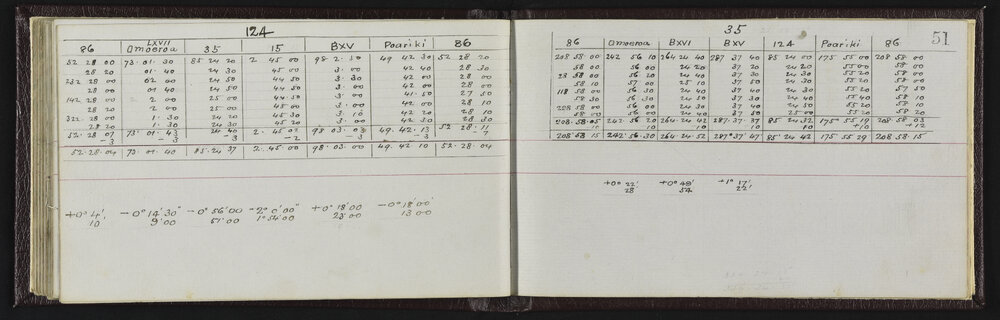 124
86 LXVII Omoeroa 35 15 BXV Poariki 86
52 28 00 73 · 01 · 30 85 24 20 2 45 00 98 · 2 · 30 49 42 30 52 28 20
28 20 01 · 40 24 30 45 00 3 · 00 42 40 28 30
232 28 00 02 00 24 50 44 50 3 · 30 42 00 28 00
28 00 01 40 24 50 44 50 3 · 00 42 00 28 00
142 28 00 2 00 25 00 44 50 3 · 00 41 · 50 27 50
28 20 2 00 25 00 45 00 3 · 00 42 00 28 10
322 · 28 00 1 · 30 24 20 45 30 3 · 10 42 20 28 10
28 20 1 · 30 24 20 45 20 3 · 00 42 30 28 30
52 · 28 07 73 · 01 · 43 24 40 2 · 45 02 98 03 · 03 49 · 42 · 13 52 28 · 11
-3 -3 -3 -2 -3 -3
52 · 28 · 04 73 · 01 · 40 85 · 24 37 2 · 45 · 00 98 · 03 · 00 49 · 42 10 52 · 28 · 04
+0° 4' -0° 14' 30" -0° 56' 00 -2° 0' 00" +0° 18' 00 -0° 18' 00
10 9' 00 51' 00 1° 54' 00 23 · 00 13 00
35
51
86 Omoeroa BXVI BXV 124 Poariki 86
208 58 00 242 56 10 264 24 40 287 37 40 85 24 00 175 55 00 208 58 00
58 00 56 00 24 20 37 20 24 20 55 00 58 00
23 58 00 56 20 24 40 37 30 24 30 55 20 58 00
58 10 57 00 25 10 37 50 24 30 55 20 57 50
118 58 00 56 30 24 40 37 30 24 40 55 40 58 00
58 30 56 30 24 50 37 40 24 50 55 40 58 10
298 58 00 56 00 24 40 37 40 24 50 55 20 58 10
58 00 56 00 24 40 37 50 25 00 55 20 58 20
208 · 58 · 05 242 · 56 20 264 · 24 42 287 · 37 · 37 85 24 · 32 175 · 55 19 208 · 58 · 03
10 10 10 10 10 +10 +12
208 58 15 242 · 56 · 30 264 · 24 · 52 287° 37 47 85 · 24 · 42 175 · 55 29 208 · 58 · 15
+0° 22' +0° 49' +1° 17'
28 54 22'